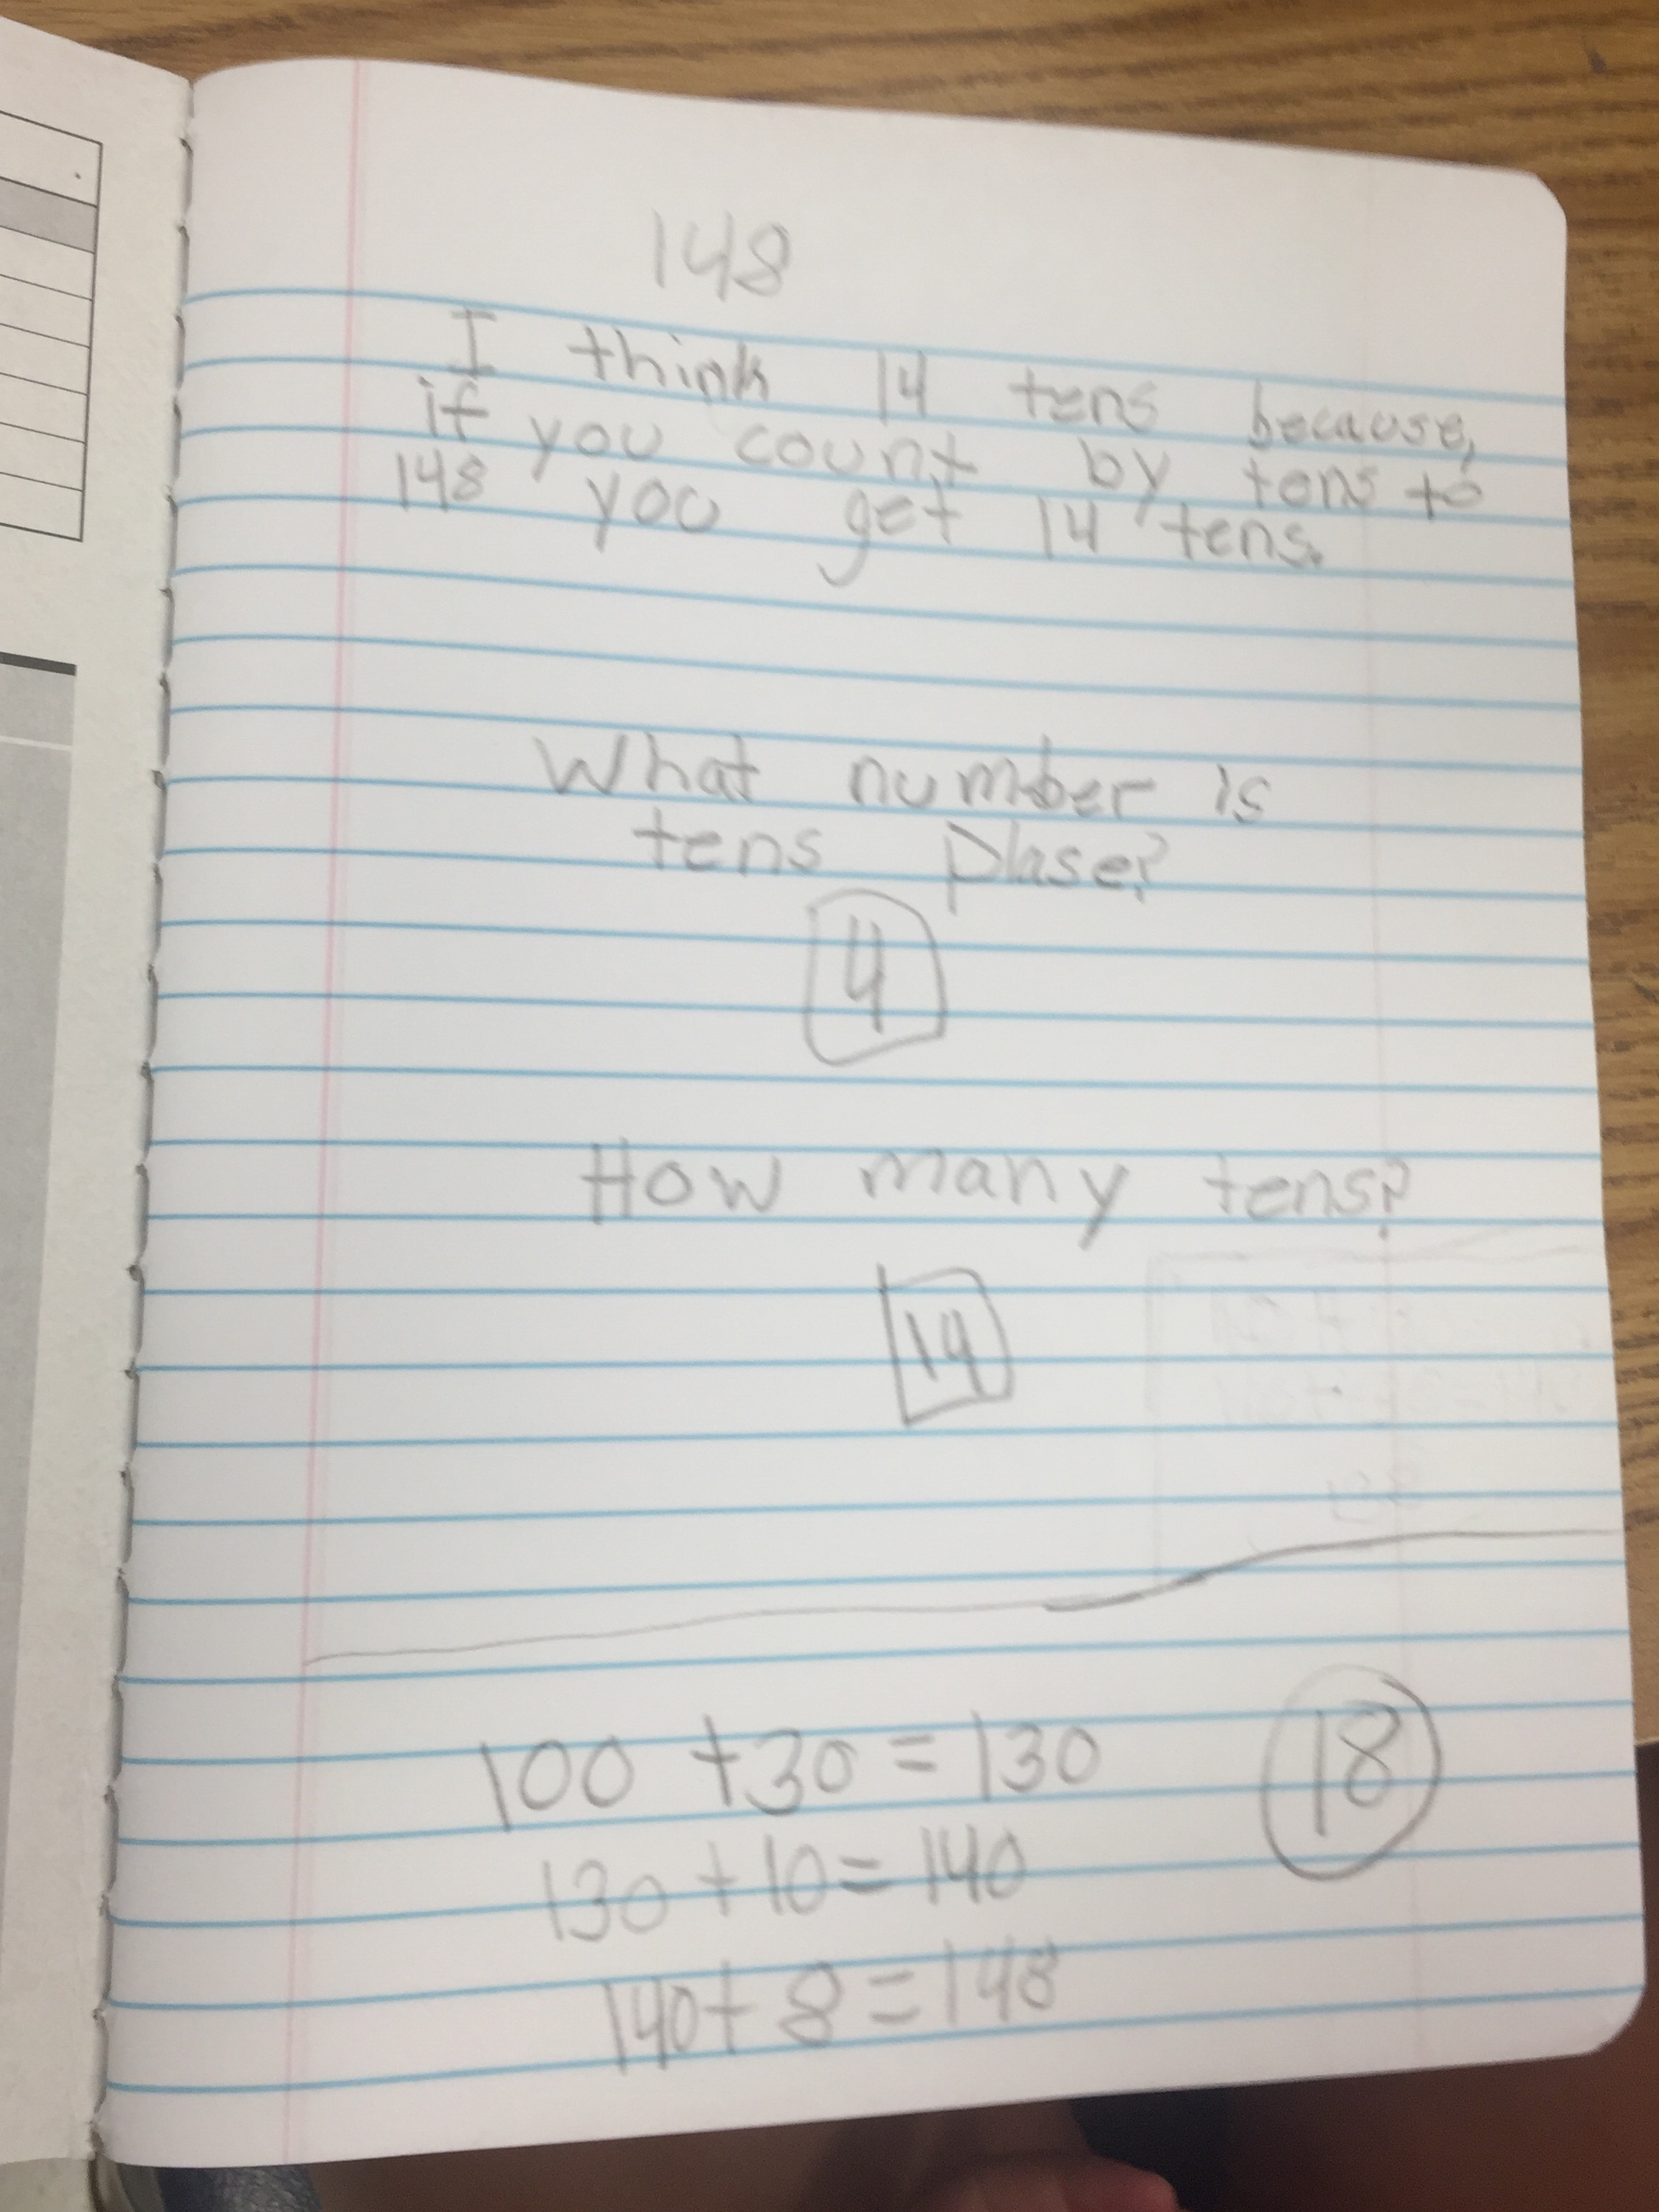 148
I think 14 tens because,
if you count by tens to
148 you get 14 tens.
What number is
tens plase?
4
How many tens?
14
100 + 30 = 130
18
130 + 10 = 140
140 + 8 = 148